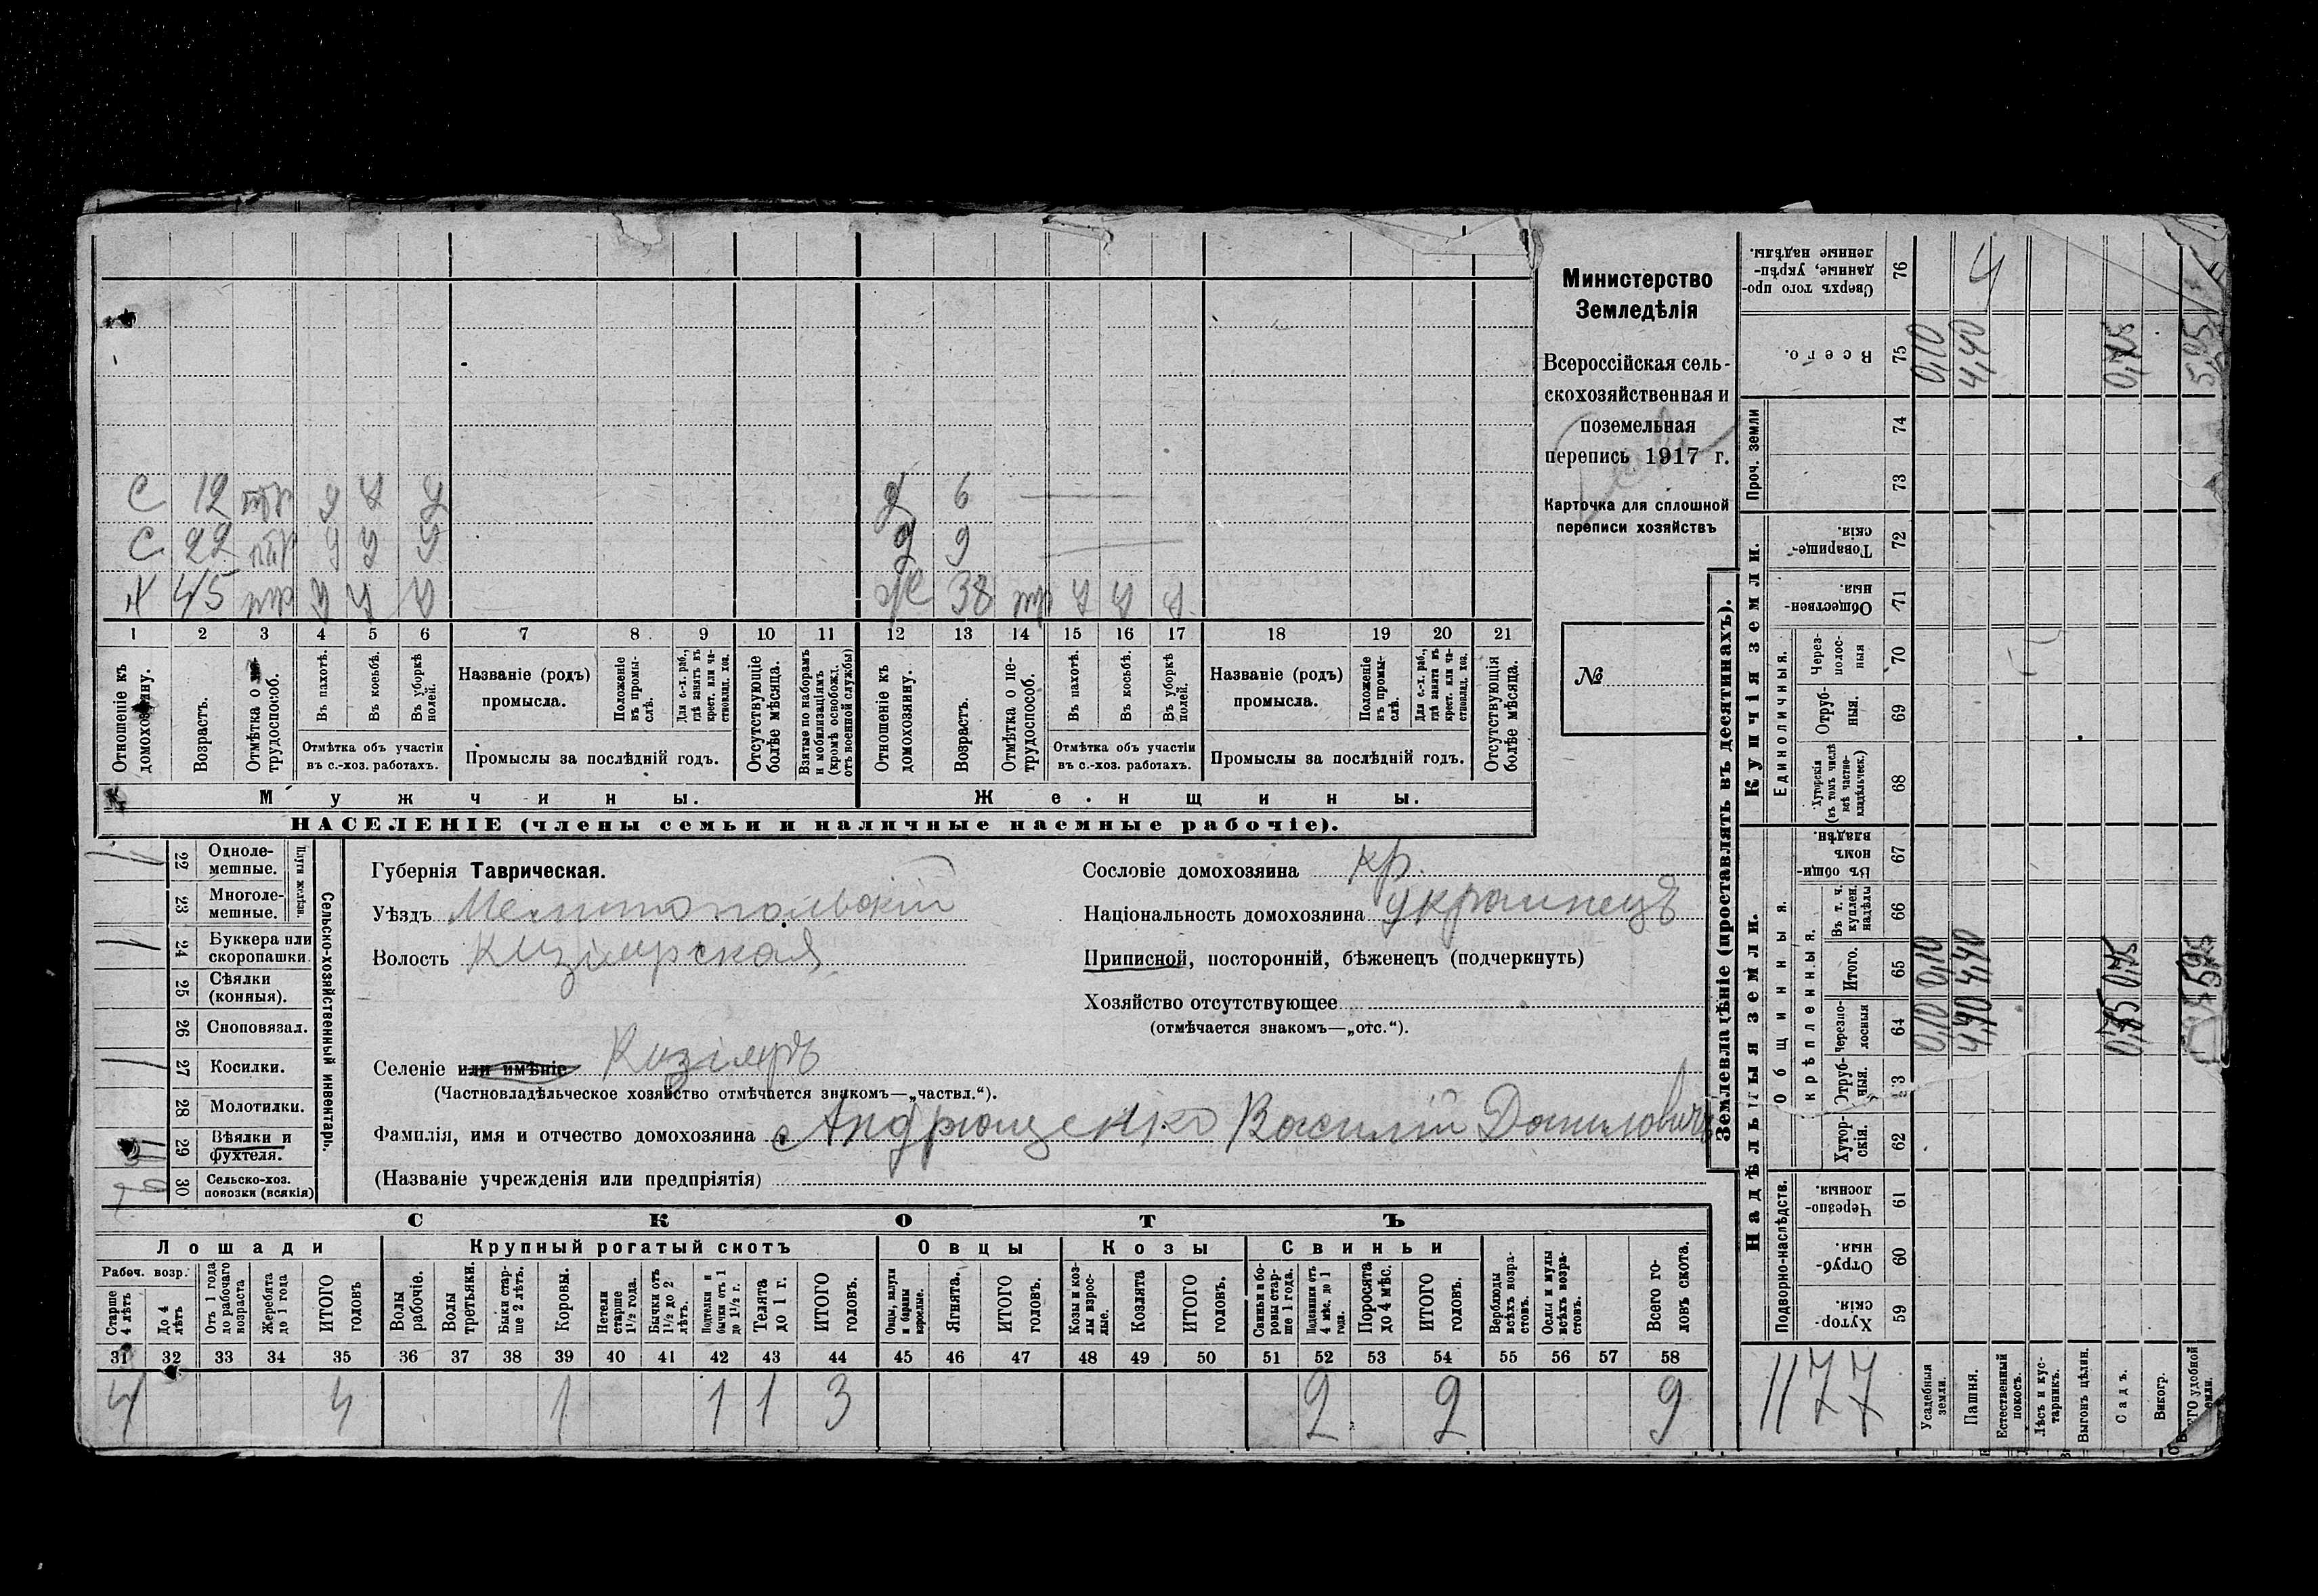 С 12 тр У У У
С 22 тр У У У
Х 45 тр У У У
Д 6
Д 9
Ж 38 тр У У У
1 2 3 4 5 6 7 8 9 10 11 12 13 14 15 16 17 18 19 20 21
Отношеніе къ домохозяину.
Возрастъ.
Отмѣтка о
трудоспособ.
Въ пахотѣ.
Въ косьбѣ.
Въ уборкѣ полей.
Отмѣтка объ участіи
въ с.-хоз. работахъ.
Названіе (родъ)
промысла.
Положеніе въ промыслѣ.
Для с.-х. раб., гдѣ занятъ въ крест. или частновлад. хоз.
Промыслы за послѣдній годъ.
Отсутствующіе болѣе мѣсяца.
Взятые по наборамъ
и мобилизаціямъ
(кромѣ освобожд.
отъ военной службы)
Отношеніе къ домохозяину.
Возрастъ.
Отмѣтка о не-
трудоспособ.
Въ пахотѣ.
Въ косьбѣ.
Въ уборкѣ полей.
Отмѣтка объ участіи
въ с.-хоз. работахъ.
Названіе (родъ)
промысла.
Положеніе въ промы-
слѣ.
Для с.-х. раб., гдѣ занята въ крест. или частновлад. хоз.
Промыслы за послѣдній годъ.
Отсутствующія болѣе мѣсяца.
Мужчины.
Женщины.
НАСЕЛЕНІЕ (члены семьи и наличные наемные рабочіе).
Министерство
Земледѣлія
Всероссійская сель-
скохозяйственная и
поземельная
перепись 1917 г.
Карточка для сплошной
переписи хозяйствъ
№
22 Одноле-
мешные.
23 Многоле-
мешные.
Плуги желѣзн.
24 Буккера или
скоропашки.
25 Сѣялки
(конныя).
26 Сноповязал.
27 Косилки.
28 Молотилки.
29 Вѣялки и
фухтеля.
30 Сельско-хоз.
повозки (всякія)
Сельско-хозяйственный инвентарь.
Губернія Таврическая.
Уѣздъ Мелитопольскій
Волость Кизіярская
Селеніе или имѣніе Кизіяръ
(Частновладѣльческое хозяйство отмѣчается знакомъ—„частвл.“).
Фамилія, имя и отчество домохозяина Андрющенко Василій Даниловичъ
(Названіе учрежденія или предпріятія)
Сословіе домохозяина кр.
Національность домохозяина украинецъ
Приписной, посторонній, бѣженецъ (подчеркнуть)
Хозяйство отсутствующее
(отмѣчается знакомъ—„отс.“).
СКОТЪ
Лошади
Крупный рогатый скотъ
Овцы
Козы
Свиньи
Рабоч. возр.
Старше 4 лѣтъ
До 4 лѣтъ
Отъ 1 года до рабочаго возраста
Жеребята до 1 года
ИТОГО головъ
Волы рабочіе.
Волы третьяки.
Быки стар-
ше 2 лѣтъ.
Коровы.
Нетели старше 1½ года.
Бычки отъ 1½ до 2 лѣтъ.
Подтелки и бычки отъ 1 до 1½ г.
Телята до 1 г.
ИТОГО головъ.
Овцы, валухи и бараны взрослые.
Ягнята.
ИТОГО головъ.
Козы и коз-
лы взрос-
лые.
Козлята
ИТОГО головъ.
Свиньи и бо-
ровы стар-
ше 1 года.
Подсвинки отъ 4 мѣс. до 1 года.
Поросята до 4 мѣс.
ИТОГО головъ.
Верблюды всѣхъ возра-
стовъ.
Ослы и мулы всѣхъ возра-
стовъ.
Всего го-
ловъ скота.
31 32 33 34 35 36 37 38 39 40 41 42 43 44 45 46 47 48 49 50 51 52 53 54 55 56 57 58
4 4 1 1 1 3 2 2 9
Землевладѣніе (проставлять въ десятинахъ).
Надѣльныя земли.
Купчія земли.
Проч. земли
Подворно-наслѣдств.
Общинныя.
Единоличныя.
Хутор-
скія. 59
Отруб-
ныя. 60
Черезпо-
лосныя. 61
Хутор-
скія. 62
Отруб-
ныя.
Черезпо-
лосныя 64
Итого. 65
Въ т. ч. куплен. надѣлы 66
Въ общин-
номъ владѣн. 67
Хуторскія (въ томъ числѣ всѣ частно-
владѣльческ.) 68
Отруб-
ныя. 69
Через-
полос-
ныя 70
Обществен-
ныя. 71
Товарище-
скія. 72
73
74
Всего. 75
Сверхъ того про-
данные, укрѣп-
ленные надѣлы. 76
1177
Усадебныя земли. 0,10 0,10 0,10
Пашня. 4,40 4,40 4,40 4
Естественный покосъ.
Лѣсъ и кус-
тарникъ.
Выгонъ цѣлин.
Садъ.
Виногр.
удобной